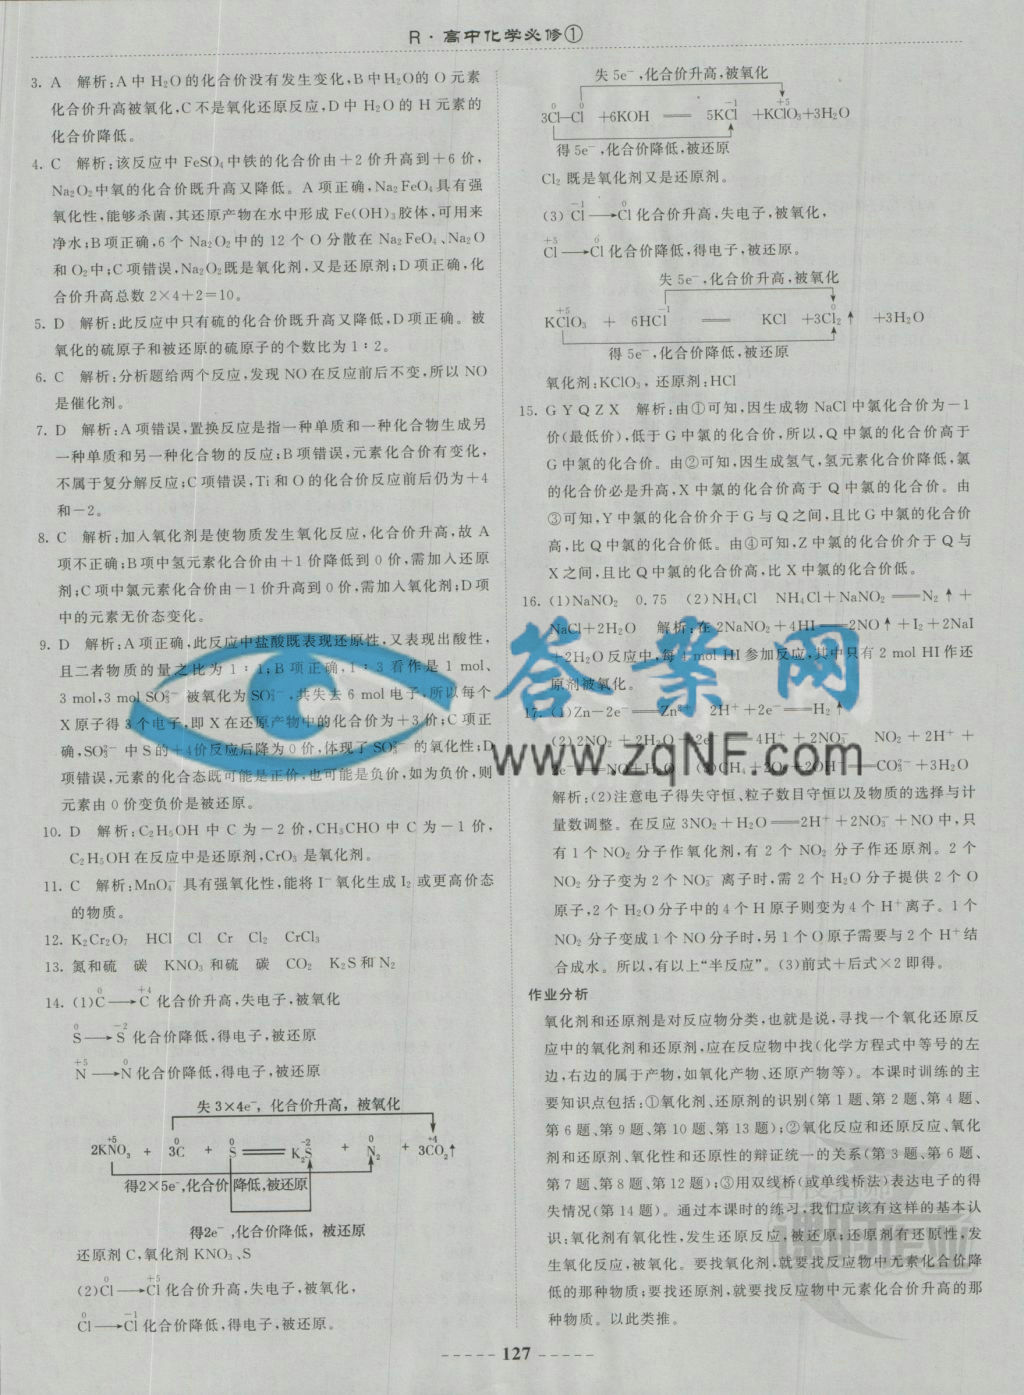 R·高中化学必修①
3. A 解析:A中H₂O的化合价没有发生变化,B中H₂O的O元素
化合价升高被氧化,C不是氧化还原反应,D中H₂O的H元素的
化合价降低。
4. C 解析:该反应中FeSO₄中铁的化合价由+2价升高到+6价,
Na₂O₂中氧的化合价既升高又降低。A项正确,Na₂FeO₄具有强
氧化性,能够杀菌,其还原产物在水中形成Fe(OH)₃胶体,可用来
净水;B项正确,6个Na₂O₂中的12个O分散在Na₂FeO₄、Na₂O
和O₂中;C项错误,Na₂O₂既是氧化剂,又是还原剂;D项正确,化
合价升高总数2×4+2=10。
5. D 解析:此反应中只有硫的化合价既升高又降低,D项正确。被
氧化的硫原子和被还原的硫原子的个数比为1∶2。
6. C 解析:分析题给两个反应,发现NO在反应前后不变,所以NO
是催化剂。
7. D 解析:A项错误,置换反应是指一种单质和一种化合物生成另
一种单质和另一种化合物的反应;B项错误,元素化合价有变化,
不属于复分解反应;C项错误,Ti和O的化合价反应前后仍为+4
和-2。
8. C 解析:加入氧化剂是使物质发生氧化反应,化合价升高,故A
项不正确;B项中氢元素化合价由+1价降低到0价,需加入还原
剂;C项中氯元素化合价由-1价升高到0价,需加入氧化剂;D项
中的元素无价态变化。
9. D 解析:A项正确,此反应中盐酸既表现还原性,又表现出酸性,
且二者物质的量之比为1∶1;B项正确,1∶3看作是1 mol、
3 mol,3 mol SO₃²⁻被氧化为SO₄²⁻,共失去6 mol电子,所以每个
X原子得3个电子,即X在还原产物中的化合价为+3价;C项正
确,SO₃²⁻中S的+4价反应后降为0价,体现了SO₃²⁻的氧化性;D
项错误,元素的化合态既可能是正价,也可能是负价,如为负价,则
元素由0价变负价是被还原。
10. D 解析:C₂H₅OH中C为-2价,CH₃CHO中C为-1价,
C₂H₅OH在反应中是还原剂,CrO₃是氧化剂。
11. C 解析:MnO₄⁻具有强氧化性,能将I⁻氧化生成I₂或更高价态
的物质。
12. K₂Cr₂O₇ HCl Cl Cr Cl₂ CrCl₃
13. 氮和硫 碳 KNO₃和硫 碳 CO₂ K₂S和N₂
0 +4
14. (1)C→C化合价升高,失电子,被氧化
0 -2
S→S化合价降低,得电子,被还原
+5 0
N→N化合价降低,得电子,被还原
失3×4e⁻,化合价升高,被氧化
+5 0 0 -2 0 +4
2KNO₃ + 3C + S ═ K₂S + N₂ + 3CO₂↑
得2×5e⁻,化合价降低,被还原
得2e⁻,化合价降低,被还原
还原剂C,氧化剂KNO₃、S
0 +5
(2)Cl→Cl化合价升高,失电子,被氧化,
0 -1
Cl→Cl化合价降低,得电子,被还原。
失5e⁻,化合价升高,被氧化
0 0 -1 +5
3Cl—Cl +6KOH ═ 5KCl +KClO₃+3H₂O
得5e⁻,化合价降低,被还原
Cl₂既是氧化剂又是还原剂。
-1 0
(3)Cl→Cl化合价升高,失电子,被氧化,
+5 0
Cl→Cl化合价降低,得电子,被还原。
失5e⁻,化合价升高,被氧化
+5 -1 0
KClO₃ + 6HCl ═ KCl +3Cl₂↑ +3H₂O
得5e⁻,化合价降低,被还原
氧化剂:KClO₃,还原剂:HCl
15. G Y Q Z X 解析:由①可知,因生成物NaCl中氯化合价为-1
价(最低价),低于G中氯的化合价,所以,Q中氯的化合价高于
G中氯的化合价。由②可知,因生成氢气,氢元素化合价降低,氯
的化合价必是升高,X中氯的化合价高于Q中氯的化合价。由
③可知,Y中氯的化合价介于G与Q之间,且比G中氯的化合价
高,比Q中氯的化合价低。由④可知,Z中氯的化合价介于Q与
X之间,且比Q中氯的化合价高,比X中氯的化合价低。
16. (1)NaNO₂ 0.75 (2)NH₄Cl NH₄Cl+NaNO₂═N₂↑+
NaCl+2H₂O 解析:在2NaNO₂+4HI═2NO↑+I₂+2NaI
+2H₂O反应中,每4 mol HI参加反应,其中只有2 mol HI作还
原剂被氧化。
17. (1)Zn-2e⁻═Zn²⁺ 2H⁺+2e⁻═H₂↑
(2)2NO₂+2H₂O-2e⁻═4H⁺+2NO₃⁻ NO₂+2H⁺+
2e⁻═NO+H₂O (3)CH₄+2O₂+2OH⁻═CO₃²⁻+3H₂O
解析:(2)注意电子得失守恒、粒子数目守恒以及物质的选择与计
量数调整。在反应3NO₂+H₂O═2H⁺+2NO₃⁻+NO中,只
有1个NO₂分子作氧化剂,有2个NO₂分子作还原剂。2个
NO₂分子变为2个NO₃⁻离子时,需2个H₂O分子提供2个O
原子,2个H₂O分子中的4个H原子则变为4个H⁺离子。1个
NO₂分子变成1个NO分子时,另1个O原子需要与2个H⁺结
合成水。所以,有以上“半反应”。(3)前式+后式×2即得。
作业分析
氧化剂和还原剂是对反应物分类,也就是说,寻找一个氧化还原反
应中的氧化剂和还原剂,应在反应物中找(化学方程式中等号的左
边,右边的属于产物,如氧化产物、还原产物等)。本课时训练的主
要知识点包括:①氧化剂、还原剂的识别(第1题、第2题、第4题、
第6题、第9题、第10题、第13题);②氧化反应和还原反应、氧化
剂和还原剂、氧化性和还原性的辩证统一的关系(第3题、第6题、
第7题、第8题、第12题);③用双线桥(或单线桥法)表达电子的得
失情况(第14题)。通过本课时的练习,我们应该有这样的基本认
识:氧化剂有氧化性,发生还原反应,被还原;还原剂有还原性,发
生氧化反应,被氧化。要找氧化剂,就要找反应物中无素化合价降
低的那种物质;要找还原剂,就要找反应物中元素化合价升高的那
种物质。以此类推。
127
答案网
www.zqNF.com